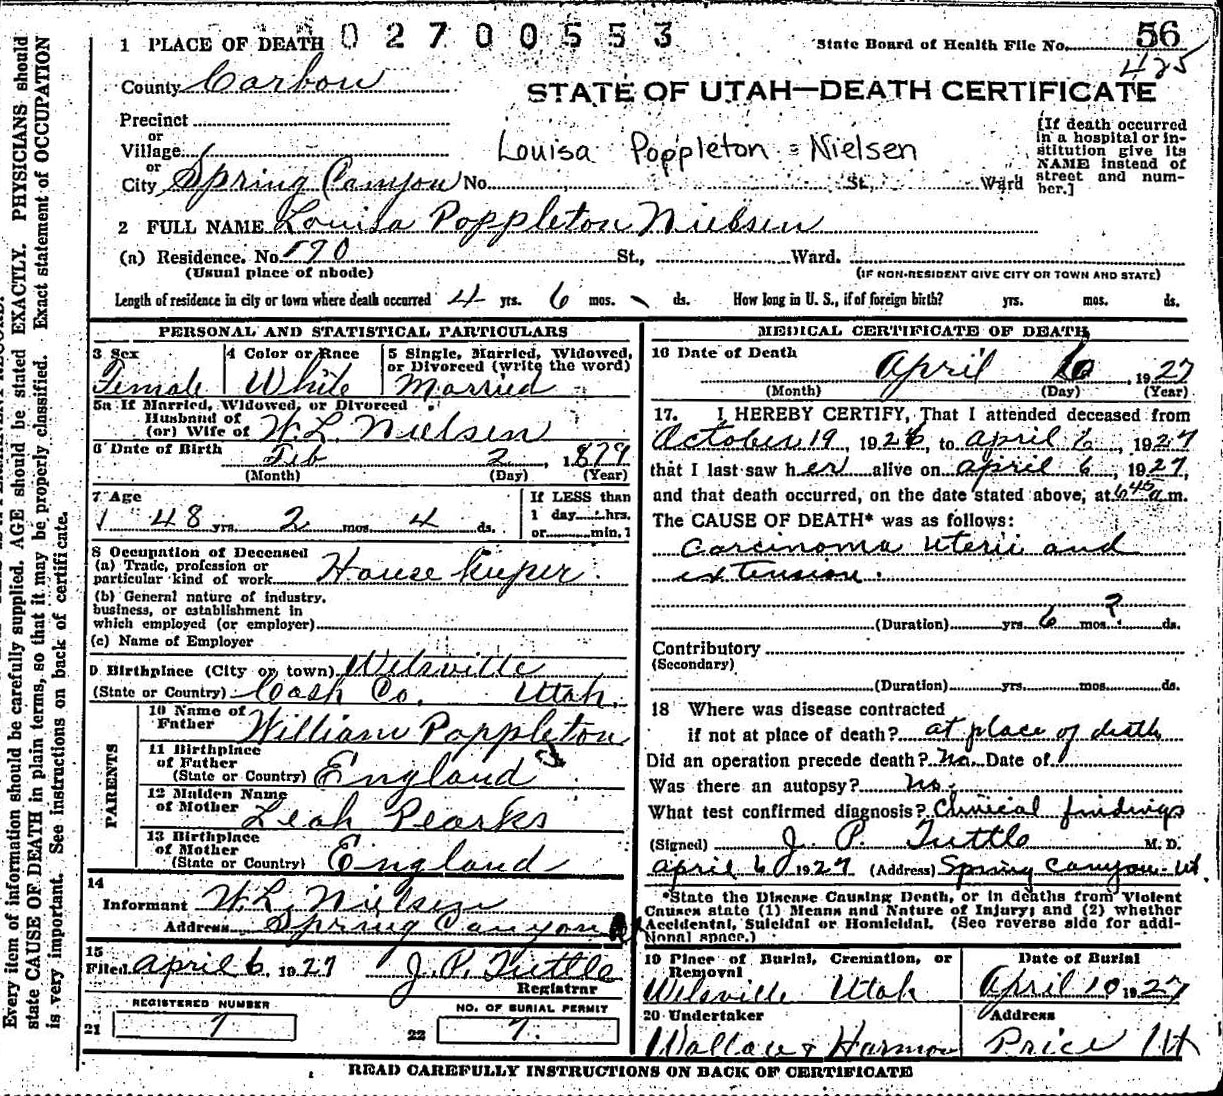 02700553
56
1 PLACE OF DEATH
State Board of Health File No.
425
County Carbon
STATE OF UTAH—DEATH CERTIFICATE
Precinct
or
Village
or
City Spring Canyon No. St., Ward
Louisa Poppleton = Nielsen
[If death occurred
in a hospital or in-
stitution give its
NAME instead of
street and num-
ber.]
2 FULL NAME Louisa Poppleton Nielsen
(a) Residence. No. 190 St., Ward.
(Usual place of abode) (IF NON-RESIDENT GIVE CITY OR TOWN AND STATE)
Length of residence in city or town where death occurred 4 yrs. 6 mos. ds. How long in U. S., if of foreign birth? yrs. mos. ds.
PERSONAL AND STATISTICAL PARTICULARS
3 Sex
Female
4 Color or Race
White
5 Single, Married, Widowed,
or Divorced (write the word)
Married
5a If Married, Widowed, or Divorced
Husband of
(or) Wife of W. L. Nielsen
6 Date of Birth Feb 2, 1879
(Month) (Day) (Year)
7 Age
48 yrs. 2 mos. 4 ds.
If LESS than
1 day hrs.
or min.
8 Occupation of Deceased
(a) Trade, profession or
particular kind of work House keeper.
(b) General nature of industry,
business, or establishment in
which employed (or employer)
(c) Name of Employer
9 Birthplace (City or town) Welsville
(State or Country) Cash Co. Utah.
PARENTS
10 Name of
Father William Poppleton
11 Birthplace
of Father
(State or Country) England
12 Maiden Name
of Mother Leah Pearks
13 Birthplace
of Mother
(State or Country) England
14
Informant W. L. Nielsen
Address Spring Canyon
15
Filed April 6, 1927 J. P. Tuttle
Registrar
REGISTERED NUMBER
21 7
NO. OF BURIAL PERMIT
22 7.
MEDICAL CERTIFICATE OF DEATH
16 Date of Death
April 6, 1927
(Month) (Day) (Year)
17. I HEREBY CERTIFY, That I attended deceased from
October 19, 1926, to April 6, 1927
that I last saw her alive on April 6, 1927,
and that death occurred, on the date stated above, at 6 45 a.m.
The CAUSE OF DEATH* was as follows:
Carcinoma uterii and
extension.
(Duration) yrs. 6 mos? ds.
Contributory
(Secondary)
(Duration) yrs. mos. ds.
18 Where was disease contracted
if not at place of death? at place of death
Did an operation precede death? No. Date of
Was there an autopsy? No.
What test confirmed diagnosis? Clinical findings
(Signed) J. P. Tuttle M. D.
April 6, 1927 (Address) Spring Canyon. Ut.
*State the Disease Causing Death, or in deaths from Violent
Causes state (1) Means and Nature of Injury; and (2) whether
Accidental, Suicidal or Homicidal. (See reverse side for addi-
tional space.)
19 Place of Burial, Cremation, or
Removal
Welsville Utah
Date of Burial
April 10 1927
20 Undertaker
Wallace & Harmon
Address
Price Ut
READ CAREFULLY INSTRUCTIONS ON BACK OF CERTIFICATE
Every item of information should be carefully supplied. AGE should be stated EXACTLY. PHYSICIANS should
state CAUSE OF DEATH in plain terms, so that it may be properly classified. Exact statement of OCCUPATION
is very important. See instructions on back of certificate.